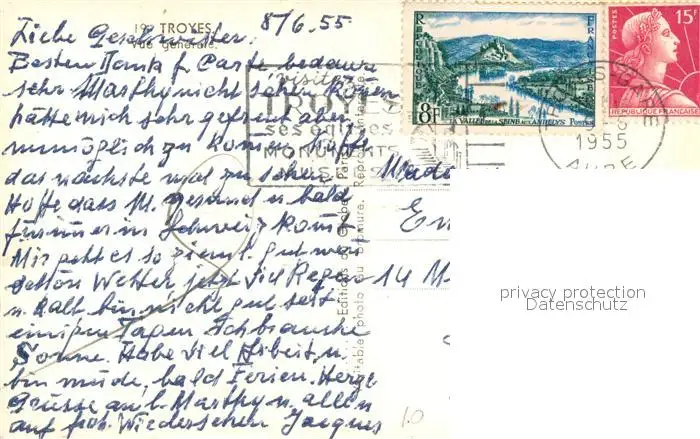 199 TROYES
Vue générale.
8/6.55
Liebe Geschwister.
Besten Dank f. Carte, bedaure
sehr Marthy nicht sehen können
hätte mich sehr gefreut aber
unmöglich zu kommen. Hoffe
das nächste mal zu sehen
Hoffe dass M. gesund u. bald
für immer in Schweiz kommt
Mir geht es so ziemt. gut war
schön Wetter jetzt viel Regen
u. kalt, bin nicht gut seit
einigen Tagen Ich brauche
Sonne. Habe viel Arbeit, u.
bin müde, bald Ferien. Herzl
Grüsse an l. Marthy u. allen
auf Wiedersehen Jacques
Visitez
TROYES
ses églises
MONUMENTS
RÉPUBLIQUE FRANÇAISE
8F
LA VALLÉE DE LA SEINE AUX ANDELYS POSTES
POSTES
15F
REPUBLIQUE FRANÇAISE
TROYES GARE
1955
AUBE
Made
14 M
privacy protection
Datenschutz
10